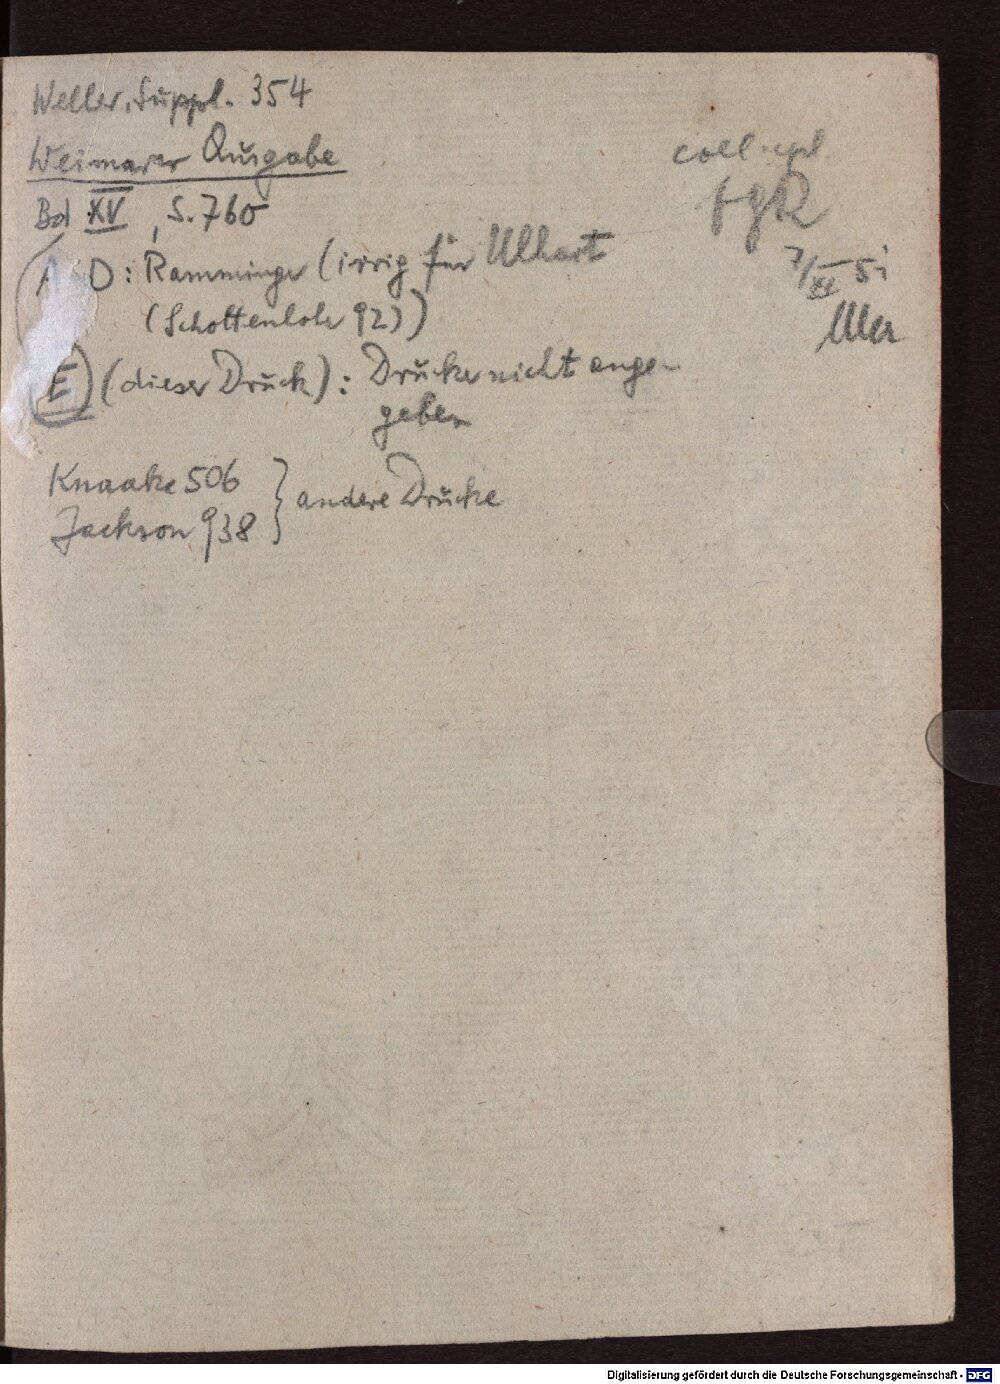 Weller, Suppl. 354
Weimarer Ausgabe
Bd XV, S. 760
D: Ramminger (irrig für Ulhart
(Schottenloher 92))
E (dieser Druck): Drucker nicht ange-
geben
Knaake 506
Jackson 938 } andere Drucke
coll. cpl.
7/XI 51
Digitalisierung gefördert durch die Deutsche Forschungsgemeinschaft - DFG